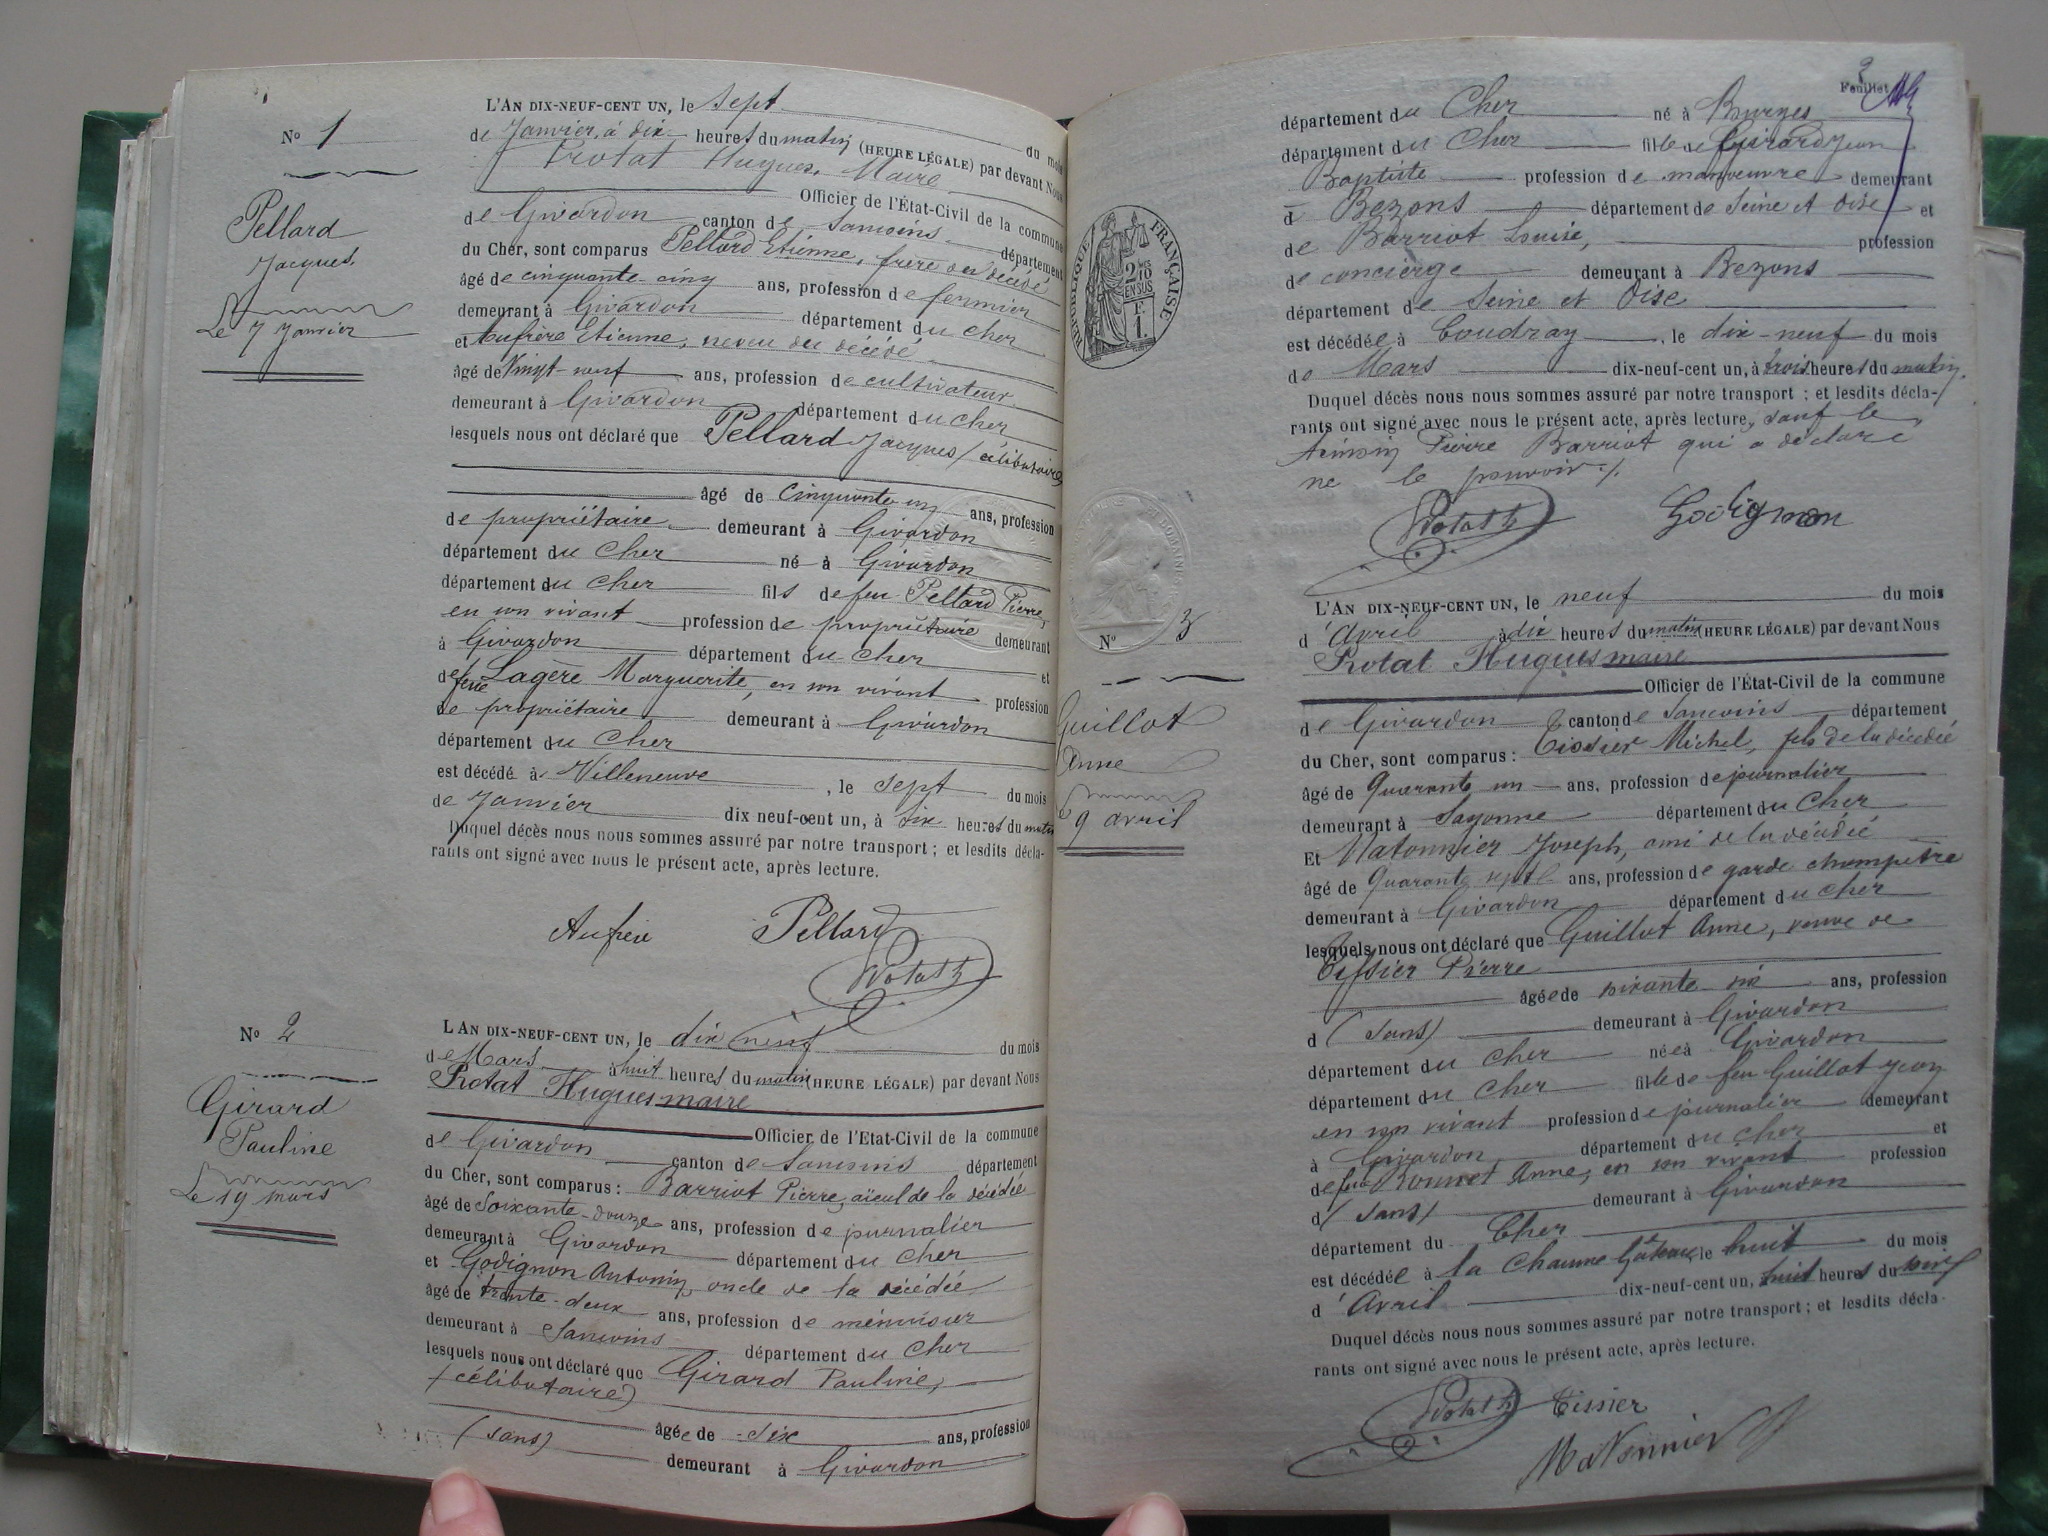 N° 1
Pellard
Jacques.
Le 7 Janvier
L'AN DIX-NEUF-CENT UN, le sept du mois
de Janvier, à dix heures du matin (HEURE LÉGALE) par devant Nous
Protat Hugues, Maire
Officier de l'État-Civil de la commune
de Givardon canton de Sancoins département
du Cher, sont comparus Pellard Etienne, frère du décédé
âgé de cinquante cinq ans, profession de fermier
demeurant à Givardon département du Cher
et Aufrère Etienne, neveu du décédé
âgé de Vingt-neuf ans, profession de cultivateur
demeurant à Givardon département du Cher
lesquels nous ont déclaré que Pellard Jacques (célibataire)
âgé de cinquante un ans, profession
de propriétaire demeurant à Givardon
département du Cher né à Givardon
département du Cher fils de feu Pellard Pierre,
en son vivant profession de propriétaire demeurant
à Givardon département du Cher et
de feue Lagère Marguerite, en son vivant profession
de propriétaire demeurant à Givardon
département du Cher
est décédé à Villeneuve, le sept du mois
de Janvier dix neuf-cent un, à six heures du matin
Duquel décès nous nous sommes assuré par notre transport ; et lesdits décla-
rants ont signé avec nous le présent acte, après lecture.
Aufrère Pellard
Protat h
N° 2
Girard
Pauline
Le 19 mars
L'AN DIX-NEUF-CENT UN, le dix neuf du mois
de Mars à huit heures du matin (HEURE LÉGALE) par devant Nous
Protat Hugues maire
Officier de l'État-Civil de la commune
de Givardon canton de Sancoins département
du Cher, sont comparus : Barriot Pierre, aïeul de la décédée
âgé de Soixante-douze ans, profession de journalier
demeurant à Givardon département du Cher
et Godignon Antonin, oncle de la décédée
âgé de trente-deux ans, profession de menuisier
demeurant à Sancoins département du Cher
lesquels nous ont déclaré que Girard Pauline,
(célibataire)
âgée de six ans, profession
(sans) demeurant à Givardon
Feuillet 2
département du Cher né à Burges
département du Cher fille de Girard Jean
Baptiste profession de manœuvre demeurant
à Bezons département de Seine et Oise et
de Barriot Louise, profession
de concierge demeurant à Bezons
département de Seine et Oise
est décédée à Coudray, le dix-neuf du mois
de Mars dix-neuf-cent un, à trois heures du matin.
Duquel décès nous nous sommes assuré par notre transport ; et lesdits décla-
rants ont signé avec nous le présent acte, après lecture, sauf le
témoin Pierre Barriot qui a déclaré
ne le pouvoir ./.
Protat h Godignon
RÉPUBLIQUE FRANÇAISE
2/10
EN SUS
F.
1.
N° 3
Guillot
Anne
le 9 avril
L'AN DIX-NEUF-CENT UN, le neuf du mois
d'Avril à dix heures du matin (HEURE LÉGALE) par devant Nous
Protat Hugues maire
Officier de l'État-Civil de la commune
de Givardon canton de Sancoins département
du Cher, sont comparus : Tissier Michel, fils de la décédée
âgé de Quarante un ans, profession de journalier
demeurant à Sagonne département du Cher
Et Matonnier Joseph, ami de la décédée
âgé de Quarante sept ans, profession de garde champêtre
demeurant à Givardon département du Cher
lesquels nous ont déclaré que Guillot Anne, veuve de
Tissier Pierre
âgée de soixante six ans, profession
d (sans) demeurant à Givardon
département du Cher née à Givardon
département du Cher fille de feu Guillot Jean
en son vivant profession de journalier demeurant
à Givardon département du Cher et
de feue Bonnet Anne, en son vivant profession
d (sans) demeurant à Givardon
département du Cher
est décédée à la Chaume Gâteau, le huit du mois
d'Avril dix-neuf-cent un, huit heures du soir
Duquel décès nous nous sommes assuré par notre transport ; et lesdits décla-
rants ont signé avec nous le présent acte, après lecture.
Protat h Tissier
Matonnier